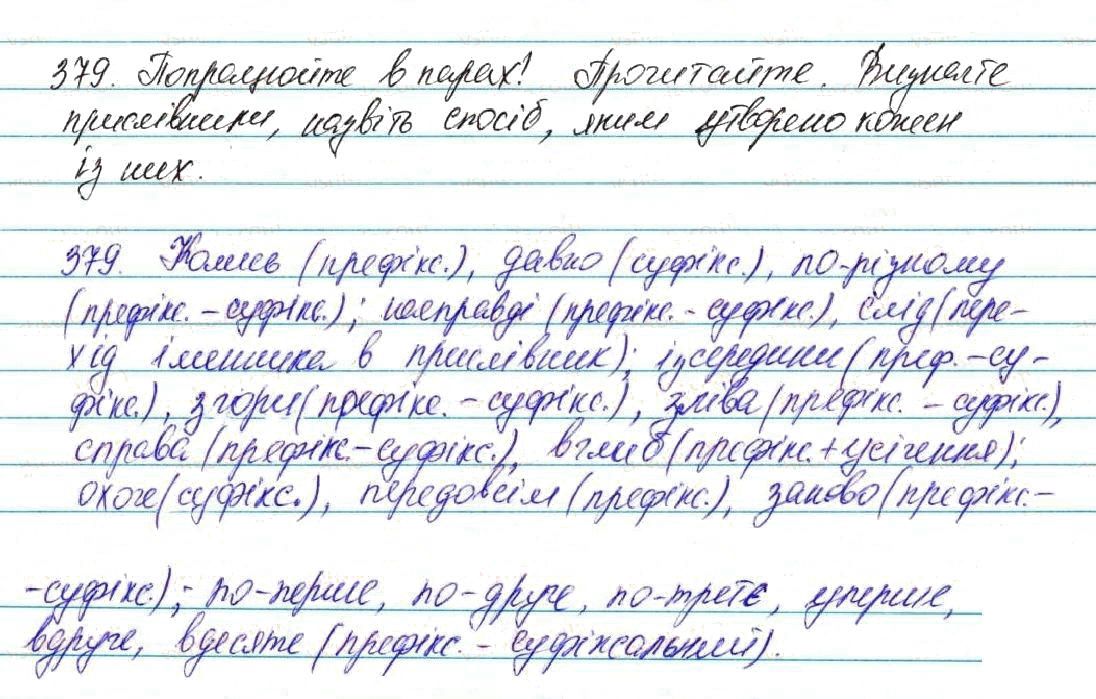 379. Попрацюйте в парах! Прочитайте. Визначте
прислівники, назвіть спосіб, яким утворено кожен
із них.
379. Колись (префікс.), давно (суфікс.), по-різному
(префікс. - суфікс.); насправді (префікс. - суфікс.), слід (пере-
хід іменника в прислівник); ізсередини (преф. - су-
фікс.), згори (префікс. - суфікс.), зліва (префікс. - суфікс.),
справа (префікс. - суфікс.), вглиб (префікс. + усічення);
охоче (суфікс.), передовсім (префікс.), заново (префікс. -
- суфікс.); по-перше, по-друге, по-третє, уперше,
вдруге, вдесяте (префікс. - суфіксальний).